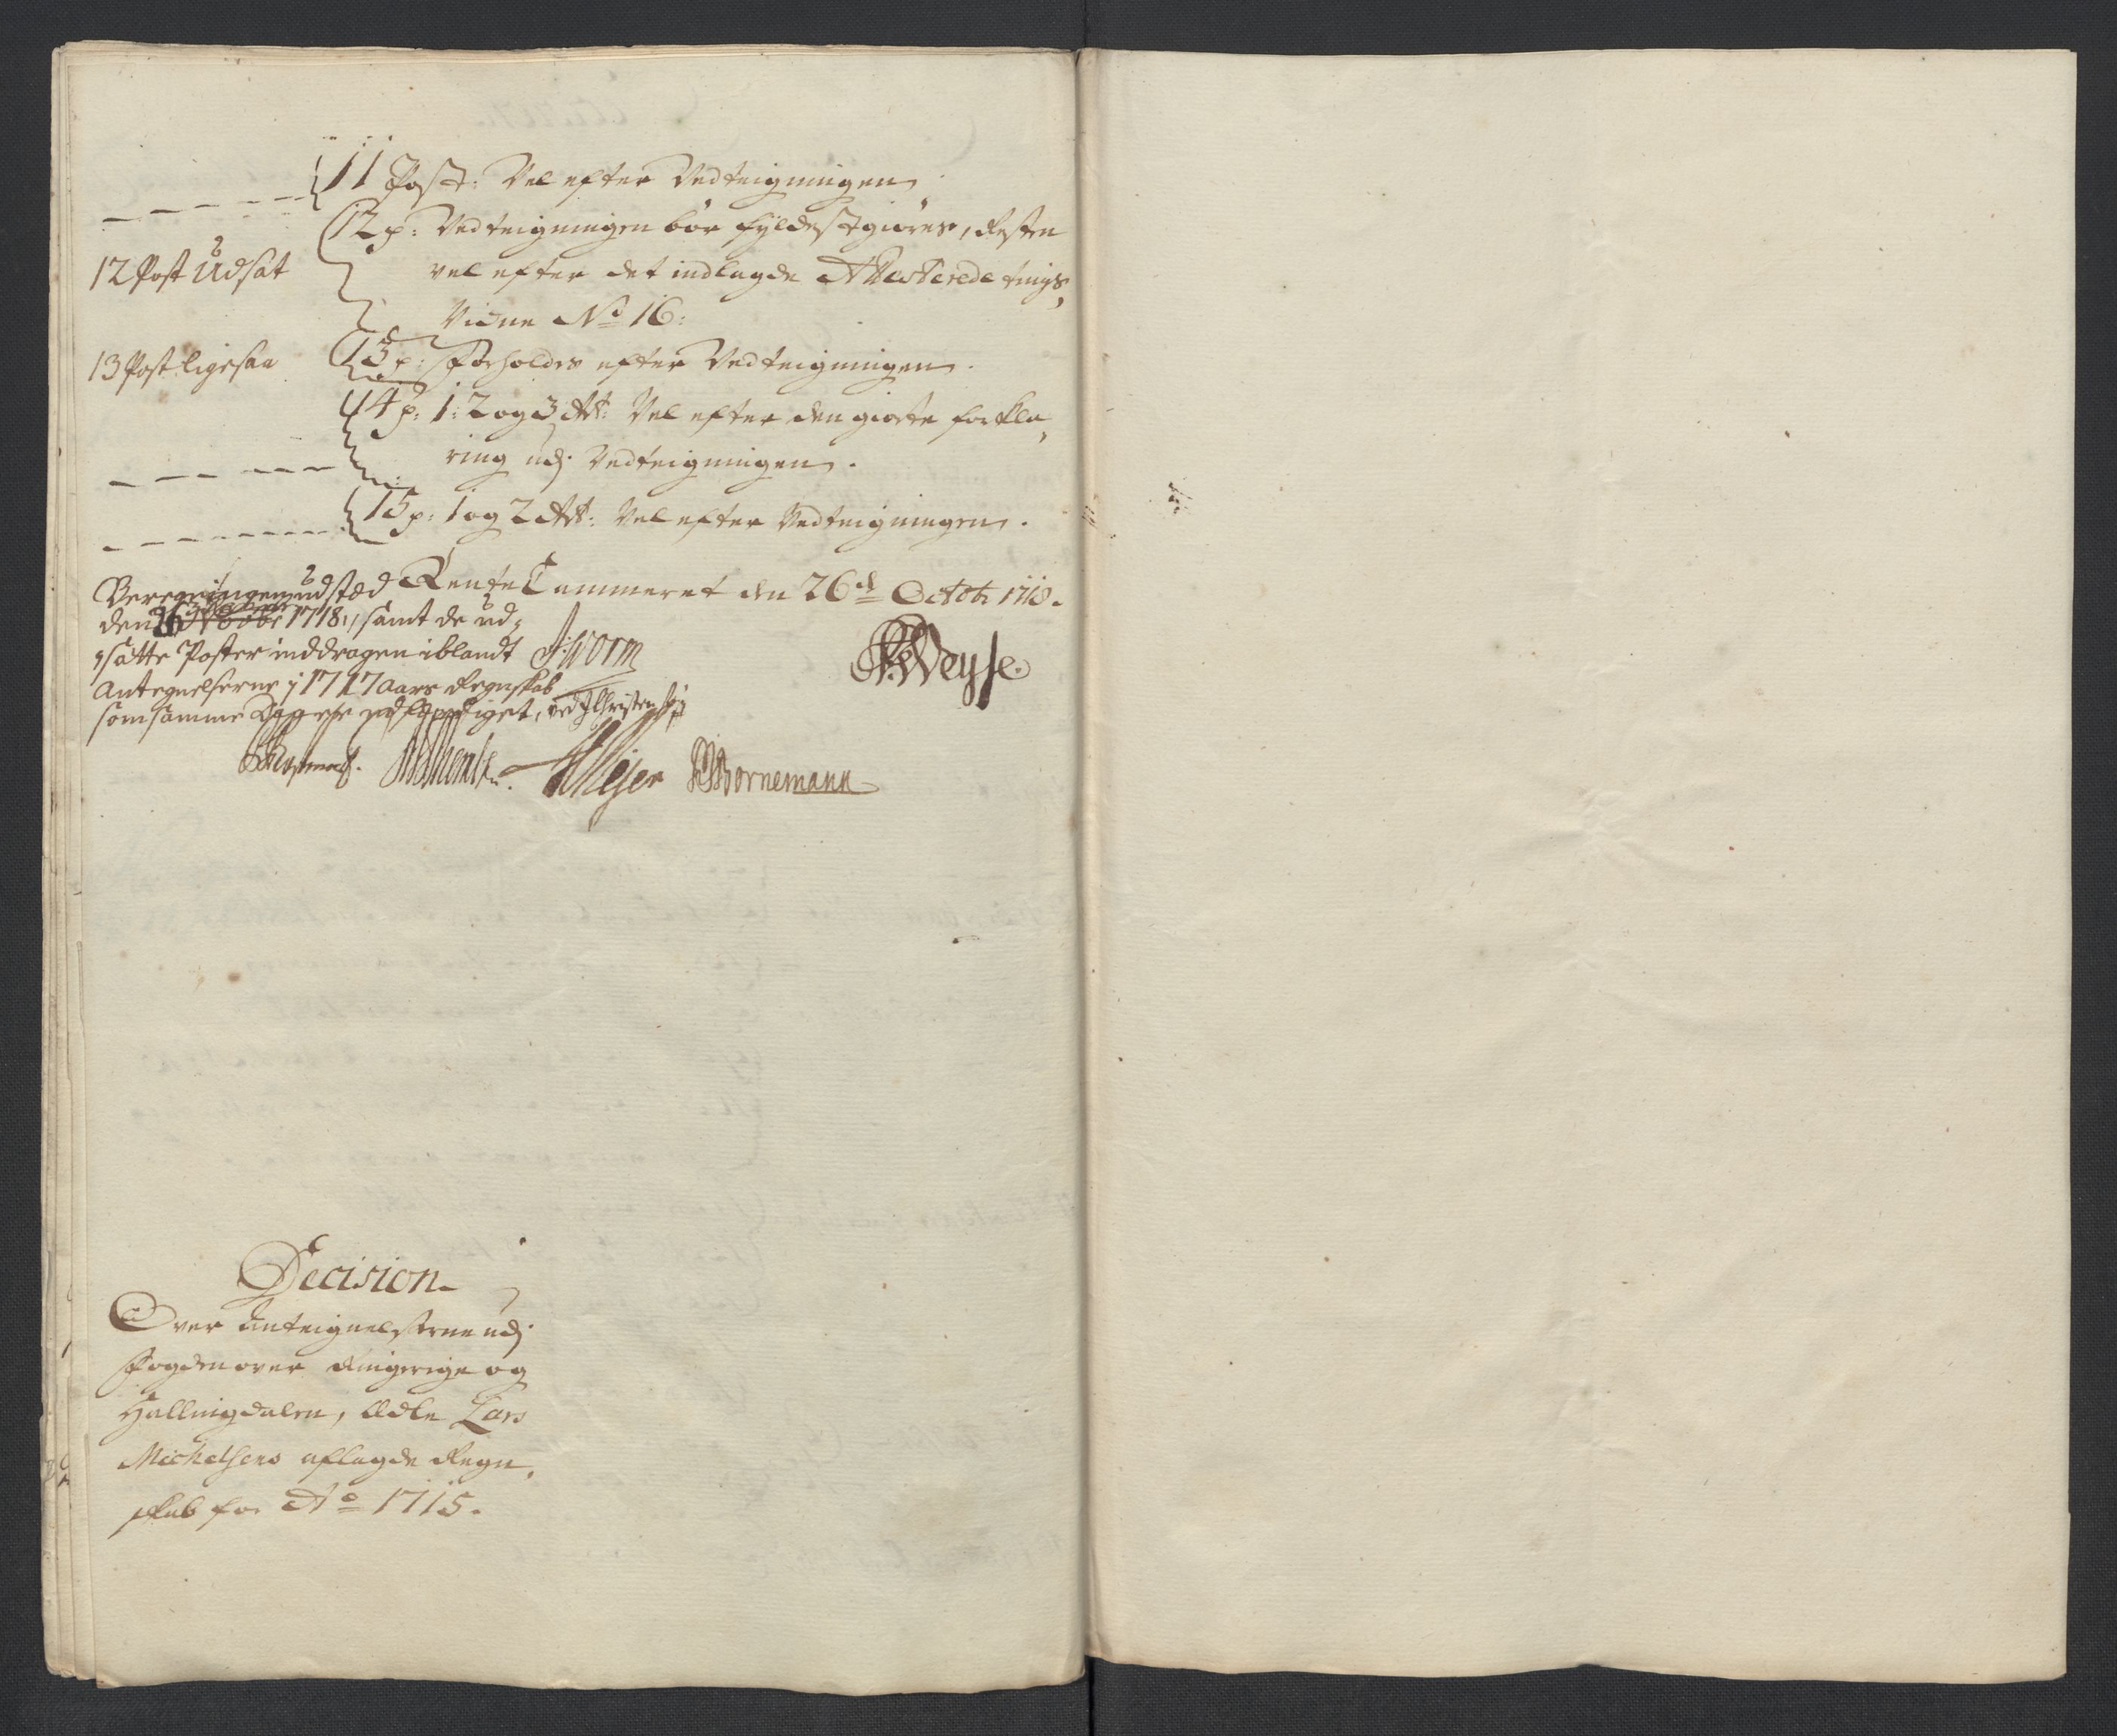 11 Post: Vel efter Vedteigningen
12 p: Vedteigningen bør fyldestgiøres, Resten
12 Post Udsat
vel efter det indlagde Attesterede tings
Vidne No 16:
13 Post ligesaa
13 p: Forholdes efter Vedteigningen.
14 p: 1: 2 og 3 Art: Vel efter den giorte forkla,
ring udj Vedteigningen.
15 p: 1 og 2 Art: Vel efter Vedteigningen.
Rente Cammeret den 26d Octobr 1718.
udstæd
den 26 1718, samt de ud,
satte Poster inddragen iblandt
Antegnelserne j 1717 Aars Regnskab
som samme
JWorm
Weyse
Meyer
Bornemann
Decision
Over Anteignelserne udj
Fogden over Ringerige og
Hallingdalen, Ædle Lars
Michelsens aflagde Regn,
skab for Ao 1715.